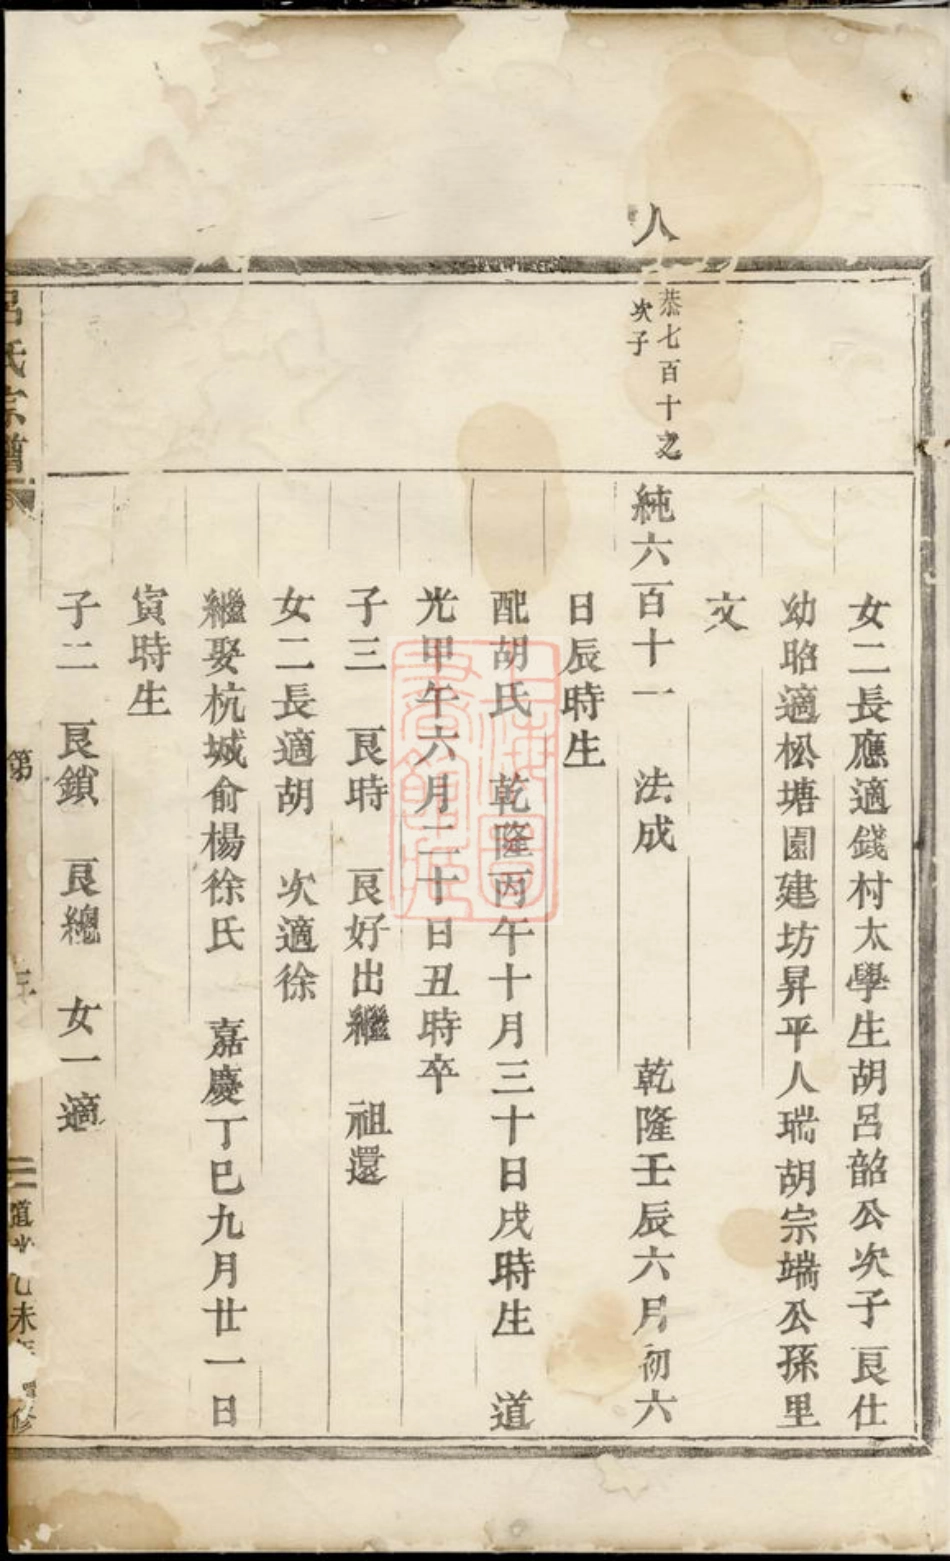 女二長應適錢村太學生胡呂韶公次子艮仕
幼昭適松塘園建坊昇平人瑞胡宗端公孫里
文
八
恭七百十之
次子
純六百十一 法成 乾隆壬辰六月初六
日辰時生
配胡氏 乾隆丙午十月三十日戌時生 道
光甲午六月二十日丑時卒
子三 艮時 艮好出繼 祖還
女二長適胡 次適徐
繼娶杭城俞楊徐氏 嘉慶丁巳九月廿一日
寅時生
子二 艮鎖 艮總 女一適
呂氏宗譜
第
道光乙未年 修
上海圖書館藏